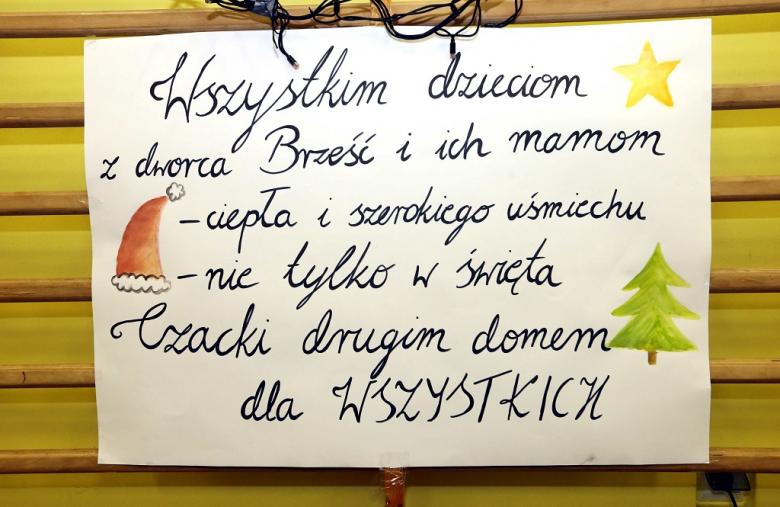 Wszystkim dzieciom
z dworca Brześć i ich mamom
- ciepła i szerokiego uśmiechu
- nie tylko w święta
Czacki drugim domem
dla WSZYSTKICH